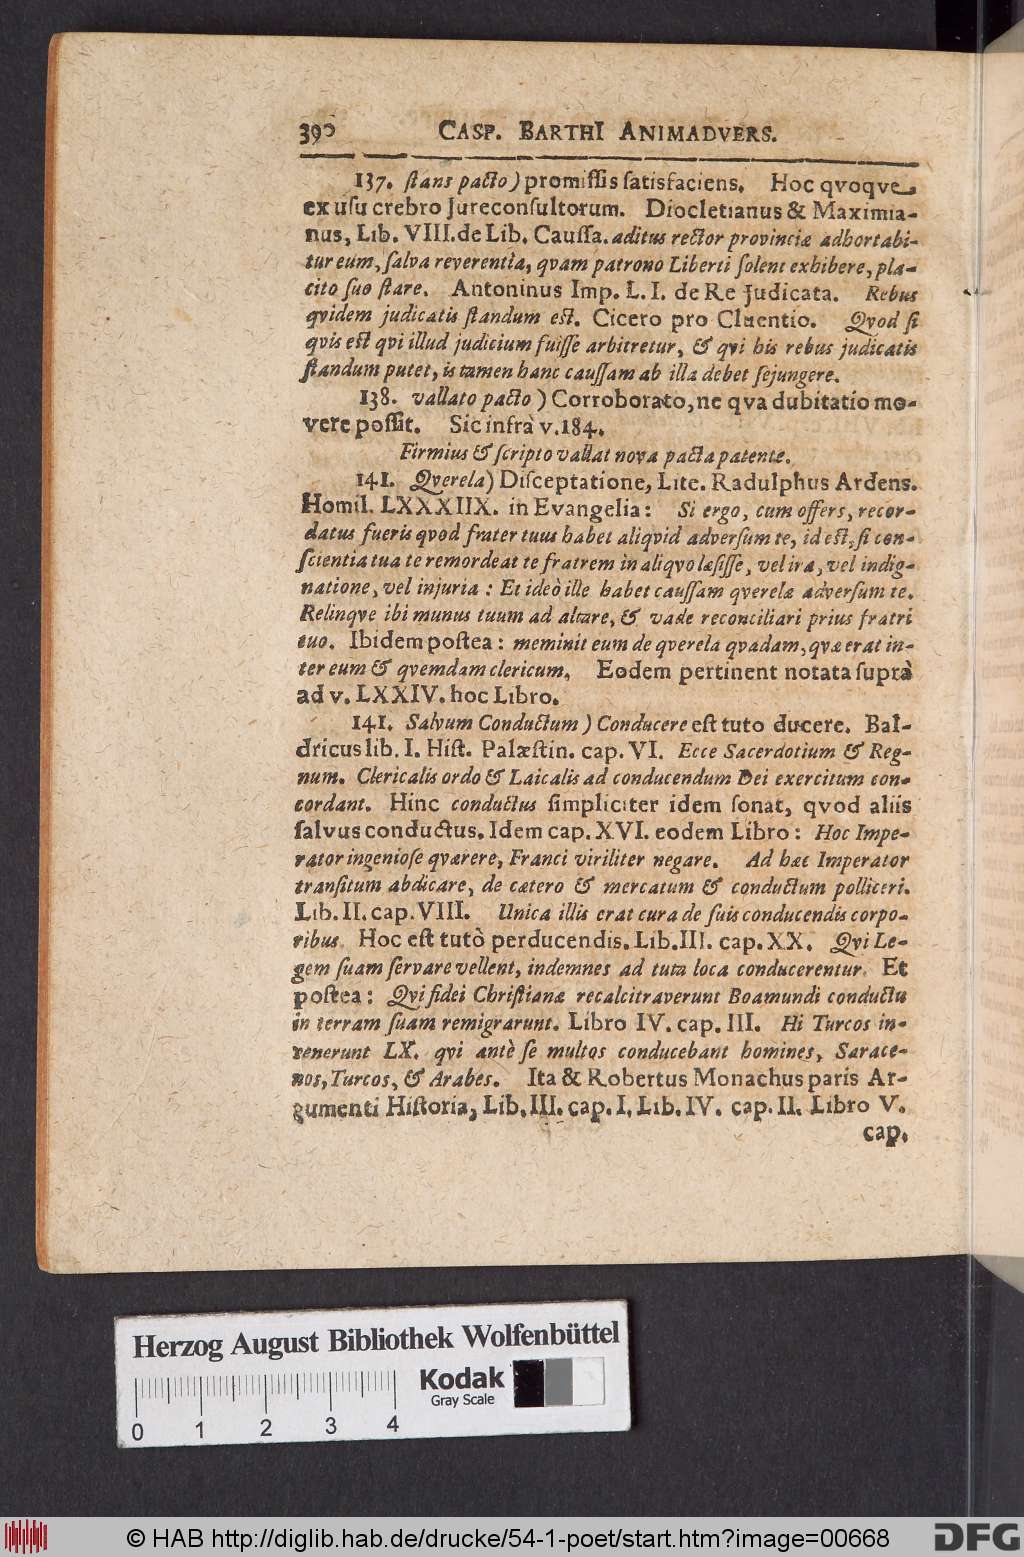 390 CASP. BARTHI ANIMADVERS.
137. ſtans pacto) promiſſis ſatisfaciens. Hoc qvoqve
ex uſu crebro Jureconſultorum. Diocletianus & Maximia-
nus, Lib. VIII. de Lib. Cauſſa. aditus rector provinciæ adhortabi-
tur eum, ſalva reverentia, qvam patrono Liberti ſolent exhibere, pla-
cito ſuo ſtare. Antoninus Imp. L. I. de Re Judicata. Rebus
qvidem judicatis ſtandum eſt. Cicero pro Cluentio. Qvod ſi
qvis eſt qvi illud judicium fuiſſe arbitretur, & qvi his rebus judicatis
ſtandum putet, is tamen hanc cauſſam ab illa debet ſejungere.
138. vallato pacto) Corroborato, ne qva dubitatio mo-
vere poſſit. Sic infrà v. 184.
Firmius & ſcripto vallat nova pacta patente.
141. Qverela) Diſceptatione, Lite. Radulphus Ardens.
Homil. LXXXIIX. in Evangelia: Si ergo, cum offers, recor-
datus fueris qvod frater tuus habet aliqvid adverſum te, id eſt, ſi con-
ſcientia tua te remordeat te fratrem in aliqvo læſiſſe, vel ira, vel indig-
natione, vel injuria: Et ideò ille habet cauſſam qverelæ adverſum te.
Relinqve ibi munus tuum ad altare, & vade reconciliari prius fratri
tuo. Ibidem poſtea: meminit eum de qverela qvadam, qvæ erat in-
ter eum & qvemdam clericum. Eodem pertinent notata ſuprà
ad v. LXXIV. hoc Libro.
141. Salvum Conductum) Conducere eſt tuto ducere. Bal-
dricus lib. I. Hiſt. Palæſtin. cap. VI. Ecce Sacerdotium & Reg-
num. Clericalis ordo & Laicalis ad conducendum Dei exercitum con-
cordant. Hinc conductus ſimpliciter idem ſonat, qvod aliis
ſalvus conductus. Idem cap. XVI. eodem Libro: Hoc Impe-
rator ingenioſe qværere, Franci viriliter negare. Ad hæc Imperator
tranſitum abdicare, de cætero & mercatum & conductum polliceri.
Lib. II. cap. VIII. Unica illis erat cura de ſuis conducendis corpo-
ribus. Hoc eſt tutò perducendis. Lib. III. cap. XX. Qvi Le-
gem ſuam ſervare vellent, indemnes ad tuta loca conducerentur. Et
poſtea: Qvi fidei Chriſtianæ recalcitraverunt Boamundi conductu
in terram ſuam remigrarunt. Libro IV. cap. III. Hi Turcos in-
venerunt LX. qvi antè ſe multos conducebant homines, Sarace-
nos, Turcos, & Arabes. Ita & Robertus Monachus paris Ar-
gumenti Hiſtoria, Lib. III. cap. I. Lib. IV. cap. II. Libro V.
cap.
Herzog August Bibliothek Wolfenbüttel
Kodak
Gray Scale
0 1 2 3 4
© HAB http://diglib.hab.de/drucke/54-1-poet/start.htm?image=00668
DFG